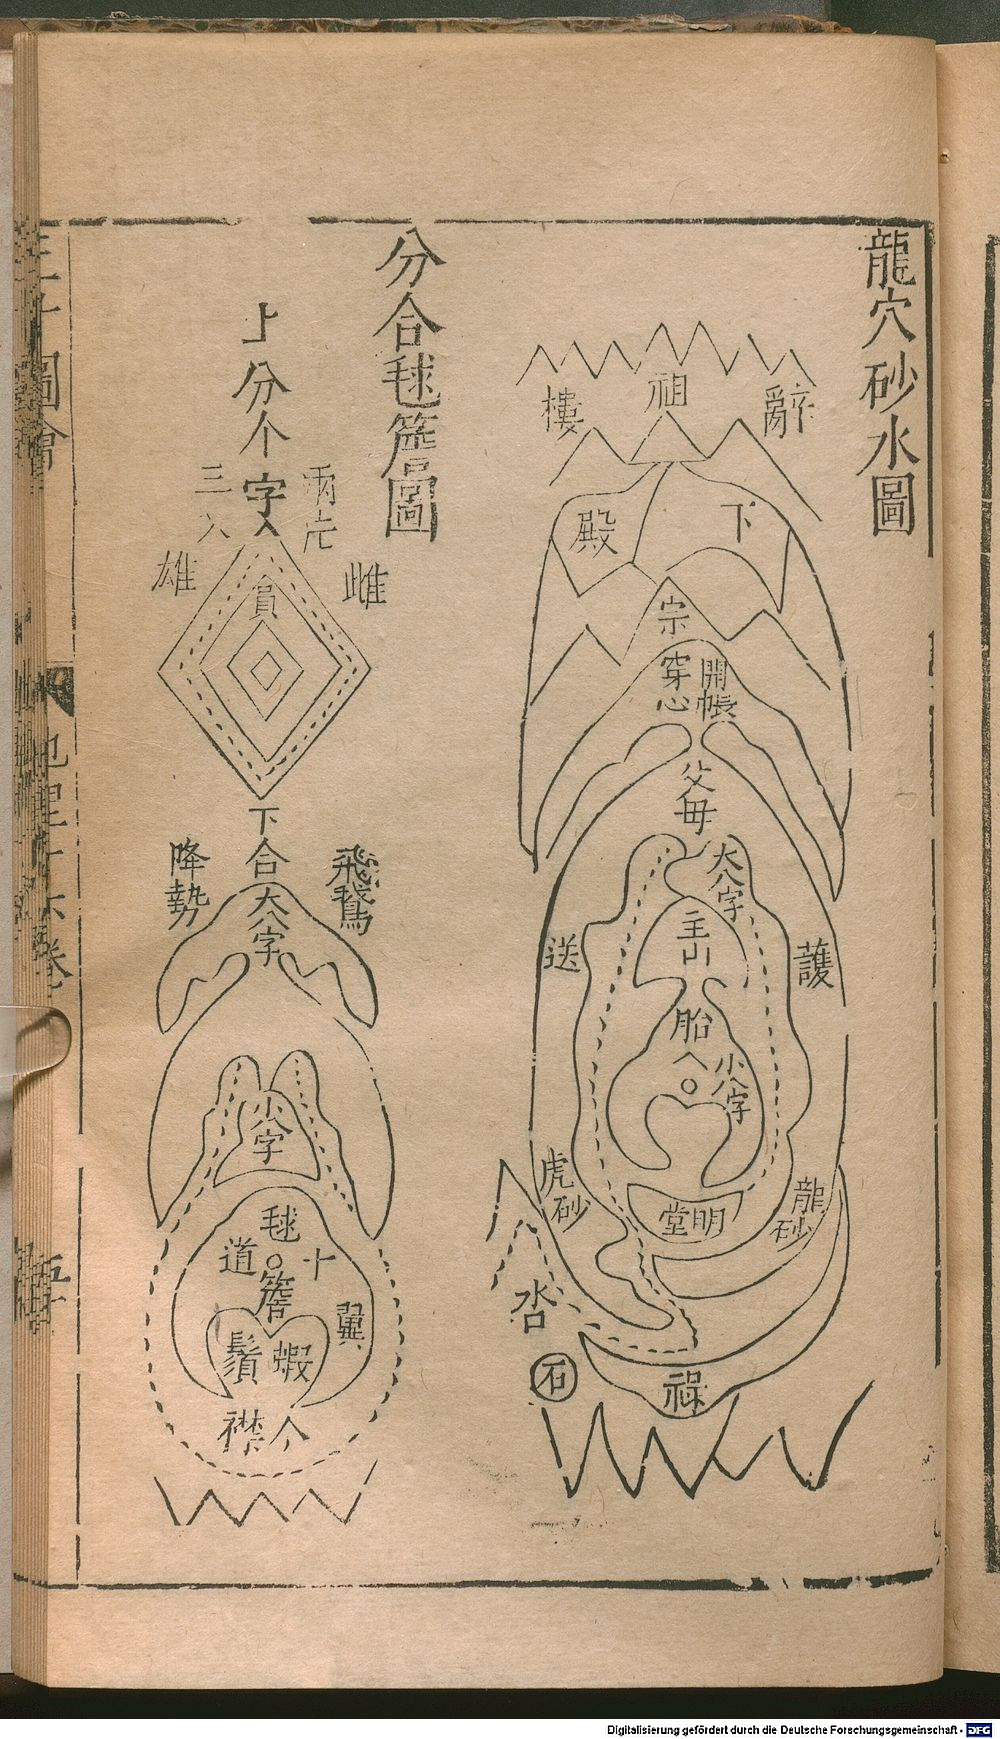 龍穴砂水圖
祖
樓
辭
殿
下
宗
開帳
穿心
父母
大八字
主山
送
護
胎
小八字
虎砂
龍砂
明堂
石
分合毬簷圖
上分个字
三八
雌
雄
員
下合
大八字
飛鵞
降勢
小八字
毬
十道
簷
翼
蝦鬚
人襟
三才圖會
地里十六卷
Digitalisierung gefördert durch die Deutsche Forschungsgemeinschaft - DFG